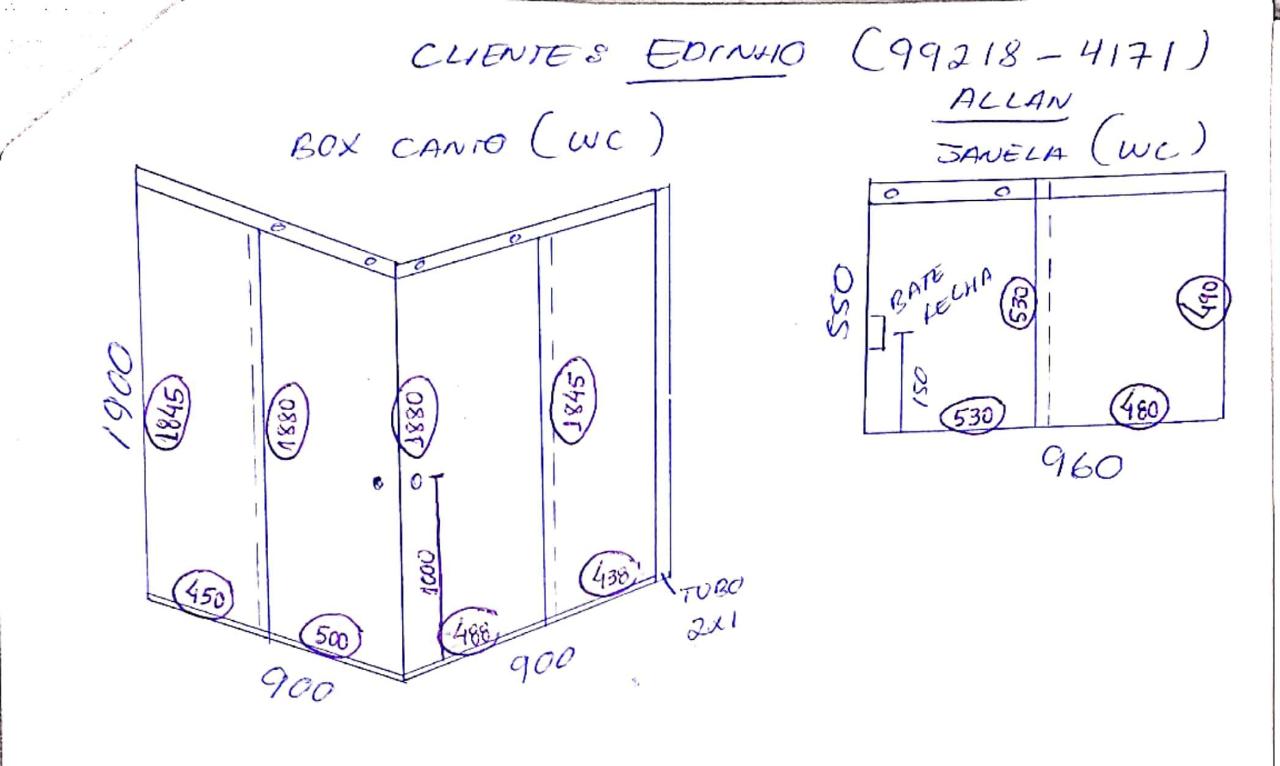 CLIENTES EDINHO (99218-4171)
ALLAN
BOX CANTO (WC)
JANELA (WC)
1900
1845
1880
1880
1845
1000
450
500
488
438
900
900
TUBO
2X1
550
BATE
FECHA
530
490
150
530
480
960